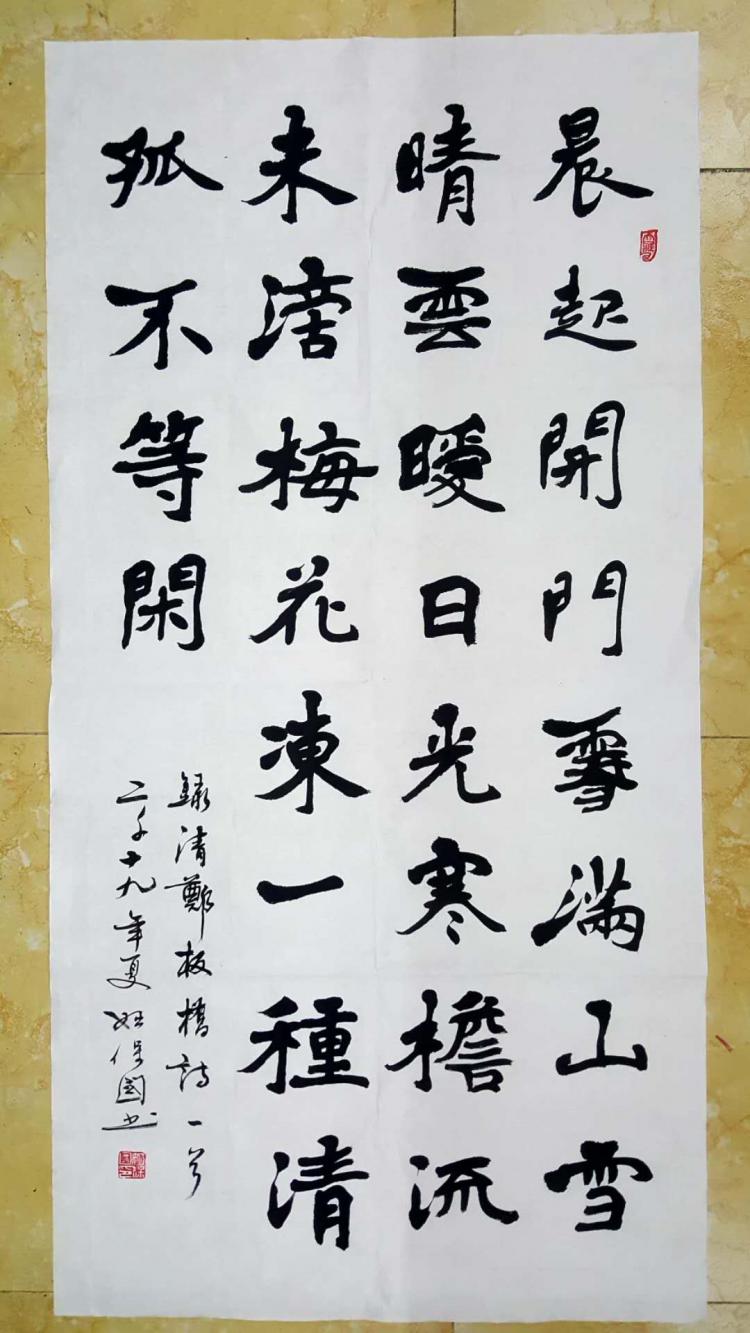 晨起開門雪滿山雪
晴雲暧日光寒檐流
未滴梅花凍一種清
孤不等閑
錄清鄭板橋詩一首
二千十九年夏 保國书